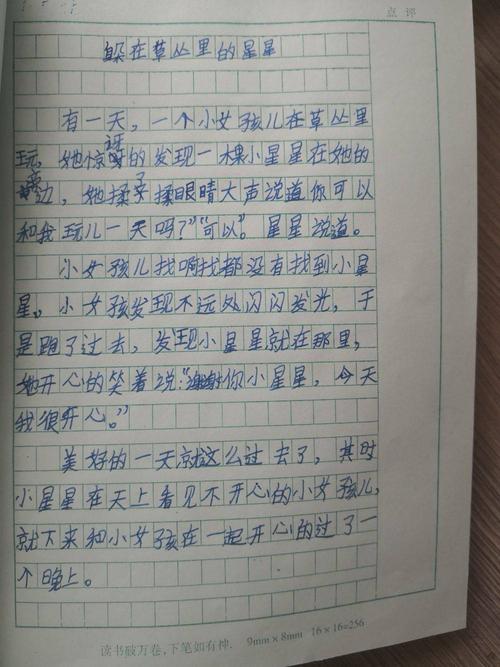 点评
躲在草丛里的星星
有一天，一个小女孩儿在草丛里
玩，她惊讶的发现一棵小星星在她的
旁边，她揉了揉眼睛大声说道你可以
和我玩儿一天吗？”“可以”。星星说道。
小女孩儿找啊找都没有找到小星
星。小女孩发现不远处闪闪发光，于
是跑了过去，发现小星星就在那里，
她开心的笑着说：“谢谢你小星星，今天
我很开心。”
美好的一天就这么过去了，其时
小星星在天上看见不开心的小女孩儿，
就下来和小女孩在一起开心的过了一
个晚上。
读书破万卷，下笔如有神. 9mm×8mm 16×16=256